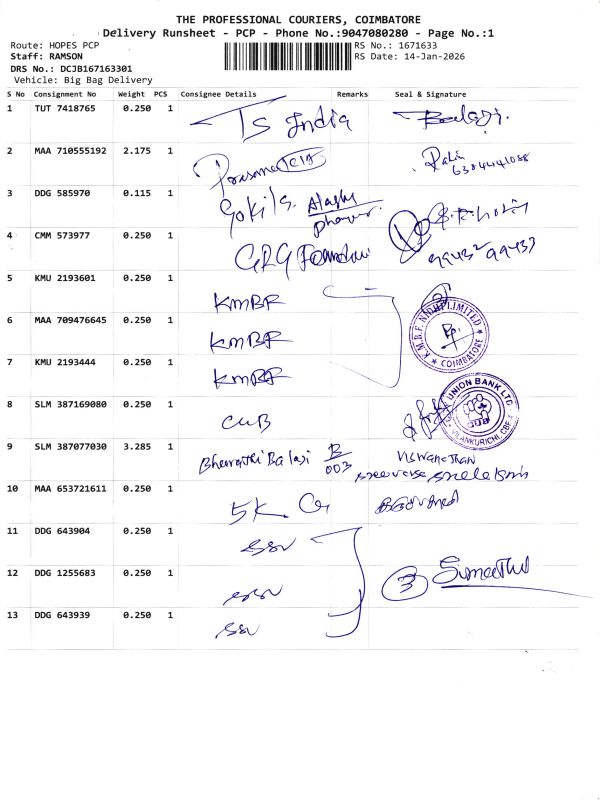 THE PROFESSIONAL COURIERS, COIMBATORE
Delivery Runsheet - PCP - Phone No.:9047080280 - Page No.:1
Route: HOPES PCP
RS No.: 1671633
Staff: RAMSON
RS Date: 14-Jan-2026
DRS No.: DCJB167163301
Vehicle: Big Bag Delivery
S No Consignment No Weight PCS Consignee Details Remarks Seal & Signature
1 TUT 7418765 0.250 1 TS India Balaji.
2 MAA 710555192 2.175 1
3 DDG 585970 0.115 1 Gokil S.
4 CMM 573977 0.250 1 GRG 99432 99433
5 KMU 2193601 0.250 1 KMBF
6 MAA 709476645 0.250 1 KMBF
K.M.B.F. NIDHI LIMITED
COIMBATORE
7 KMU 2193444 0.250 1 KMBF
8 SLM 387169080 0.250 1 CUB
UNION BANK LTD
CUB
VILANKURICHI, CBE-
9 SLM 387077030 3.285 1 Bharathi Balaji B 003
10 MAA 653721611 0.250 1 5K.
11 DDG 643904 0.250 1 SSV
12 DDG 1255683 0.250 1 SSV 3
13 DDG 643939 0.250 1 SSV